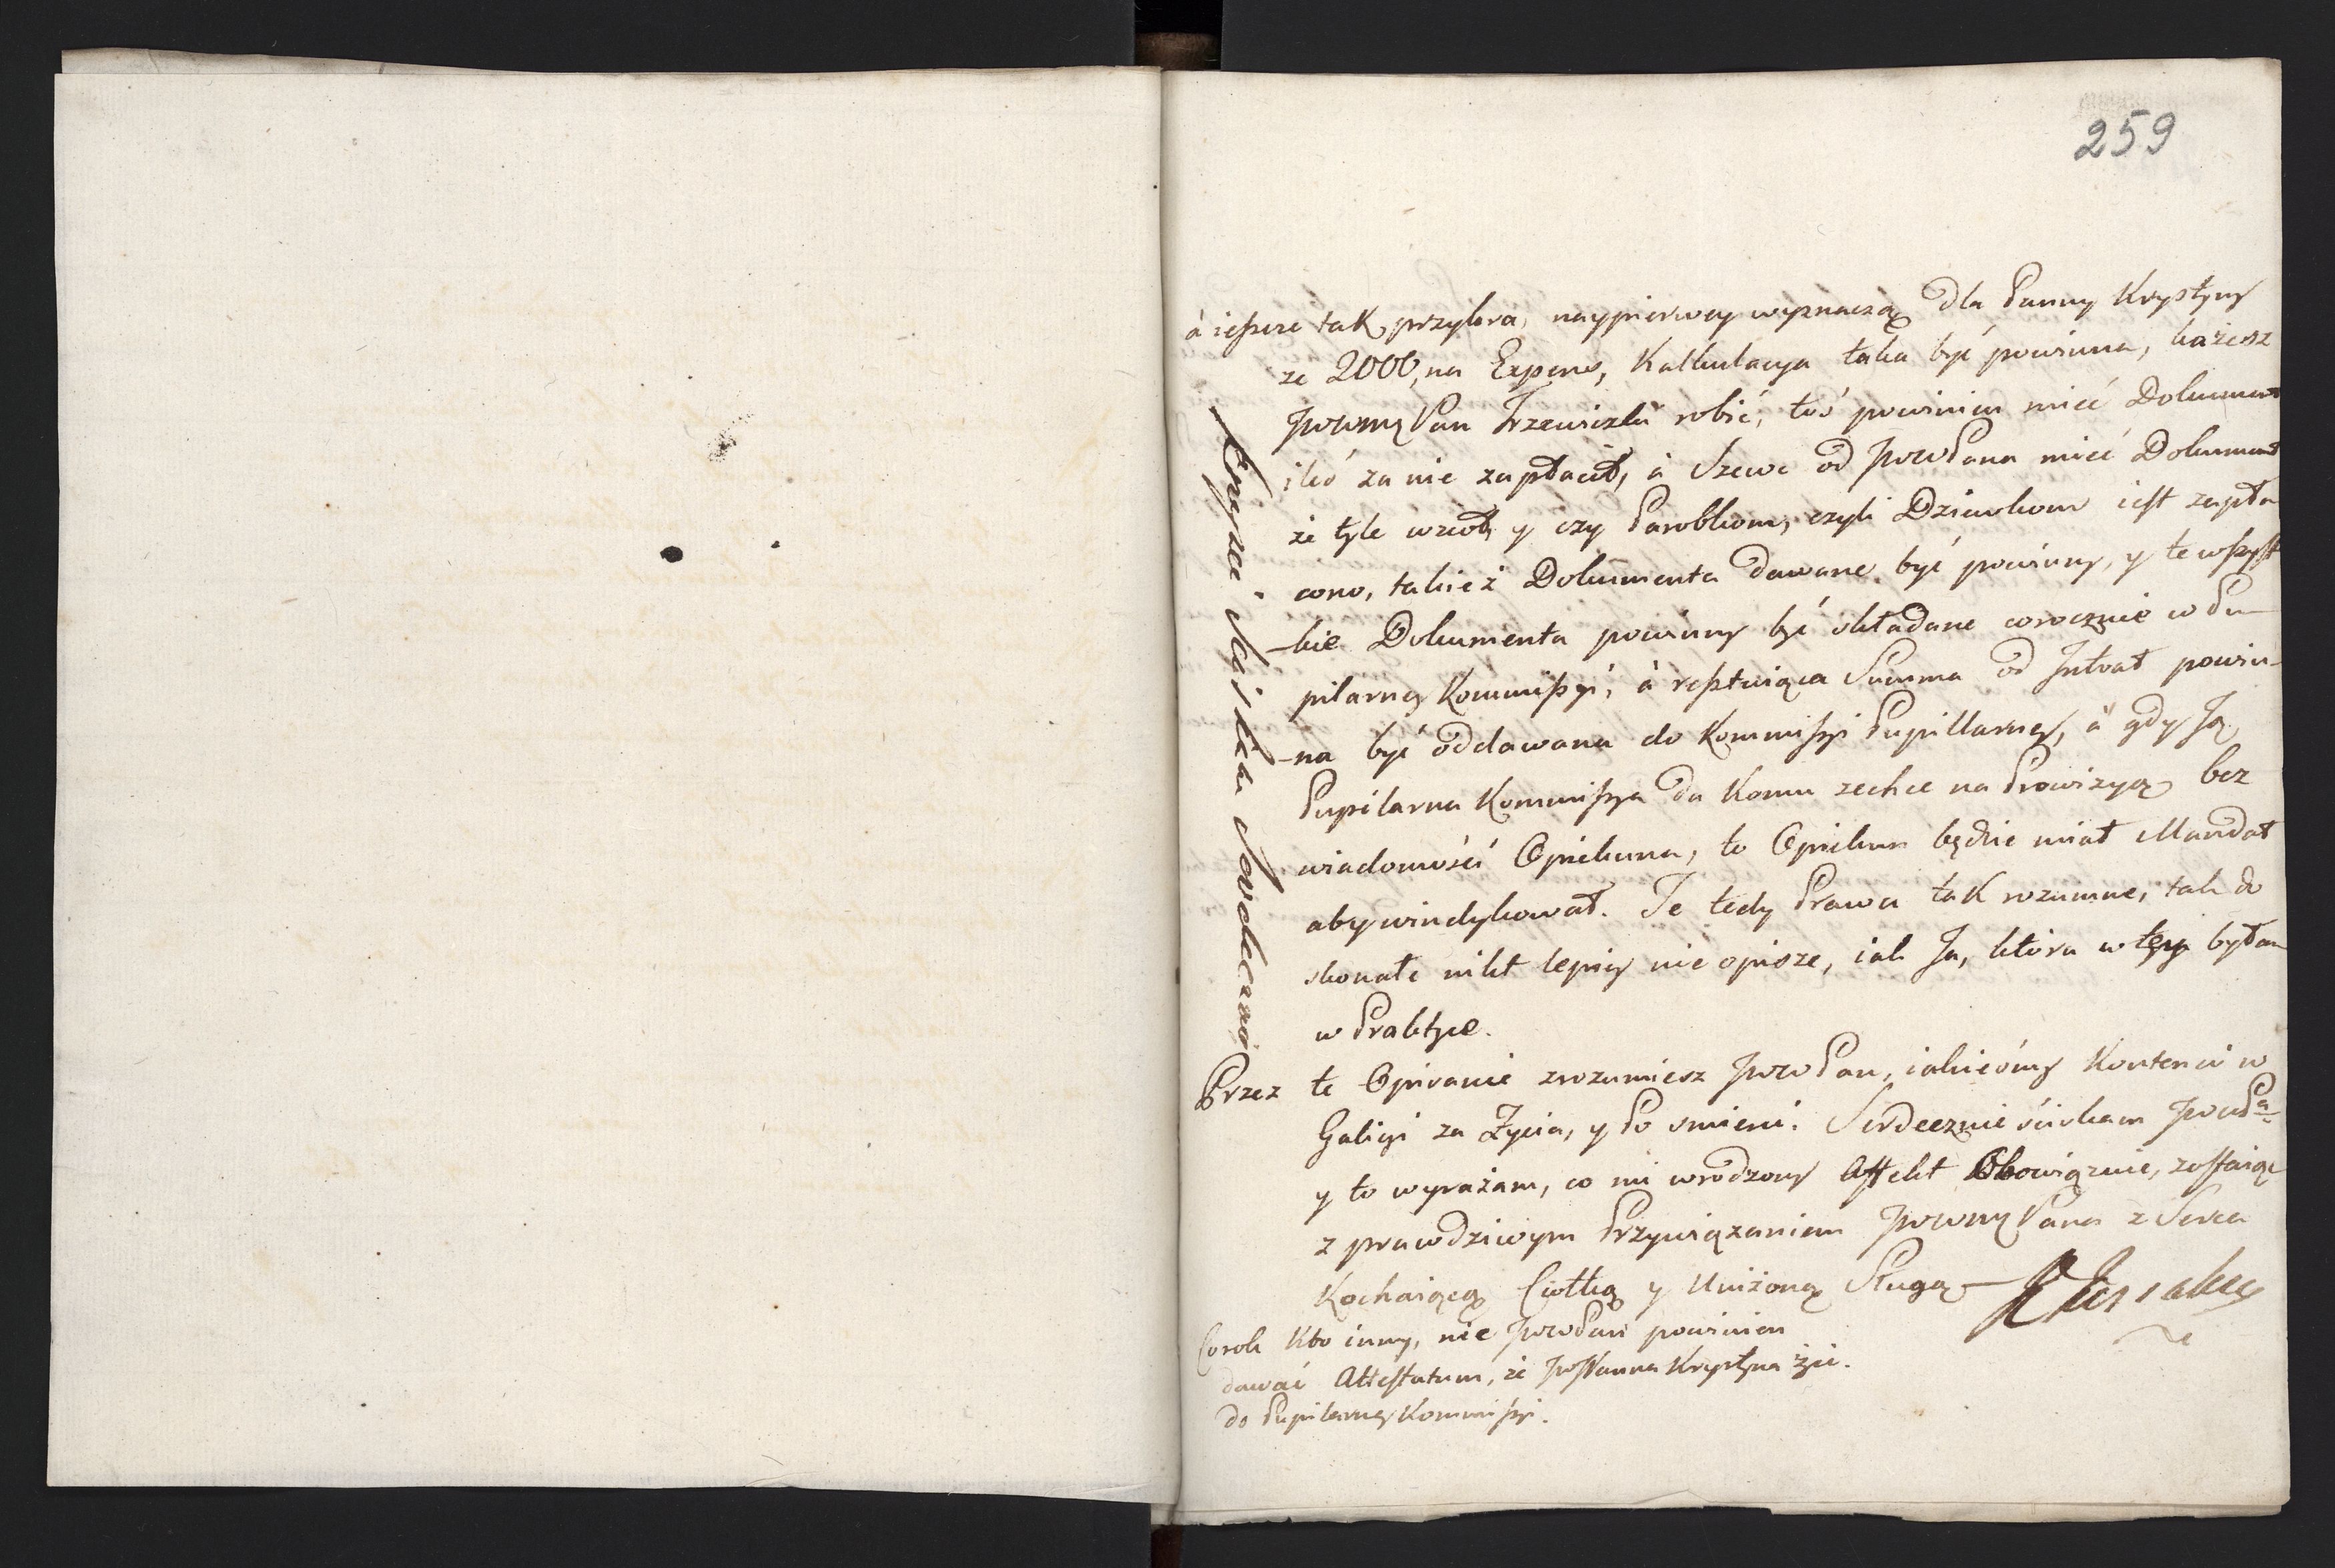 259
à ieszcze tak przykra, naypierwey wyznaczą dla Panny Krystyny
ze 2000, na Expens, Kalkulacya taka być powinna, każesz
JWWMq Pan Trzewiczki robić, toś powinien mieć Dokument
ileś za nie zapłacił, à Szewc od JWWPana mieć Dokument
że tyle wzioł, y czy Parobkom, czyli Dziewkom iest zapła
cono, takież Dokumenta dawane być powinny, y te wszyst
-kie Dokumenta powinny być składane corocznie w Pu-
pilarney Kommissyi, à resztuiąca Summa od Intrat powin-
-na być oddawana do Kommissyi Pupillarney, à gdy Ją
Pupilarna Kommissya da Komu zechce na Prowizyą bez
wiadomości Opiekuna, to Opiekun będzie miał Mandat
aby windykował. Te tedy Prawa tak rozumne, tak do
skonałe nikt lepiey nie opisze, iak Ja, która w tey byłam
w Praktyce.
Przez te Opisanie zrozumiesz JWWPan, iakieśmy Kontenci w
Galicyi za Życia, y Po smierci. Serdecznie ściskam JWWPa-
y to wyrażam, co mi wrodzony Affekt Obowiązuie, zostaiąc
z prawdziwym Przywiązaniem JWWMq Pana z Serca
Kochaiącą Ciotką y Uniżoną Sługą
Corok Kto inny, nie JWWPan powinien
dawać Attestatum, że JWPanna Krystyna żyie.
do Pupilarney Kommissyi.
Ściskam Serdecznie